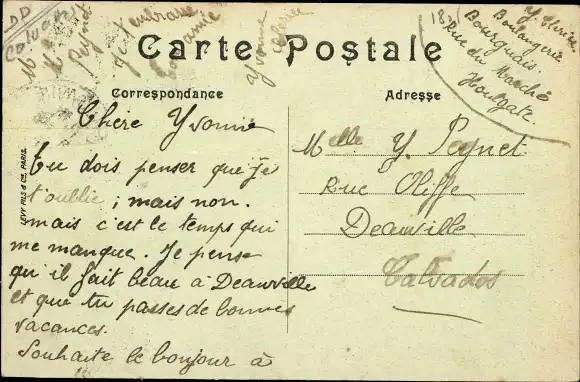 DD
Calvados
Yvonne
Chérie
Y. Thérèse
Boulangerie
Bourquais.
18, Rue du Marché
Houlgate.
Carte Postale
Correspondance
Adresse
Chère Yvonne
Tu dois penser que je
t'oublie ; mais non.
mais c'est le temps qui
me manque. Je pense
qu'il fait beau à Deauville
et que tu passes de bonnes
vacances.
Souhaite le bonjour à
Melle Y. Peynet
Rue Oliffe
Deauville
Calvados
LEVY FILS & Cie, PARIS